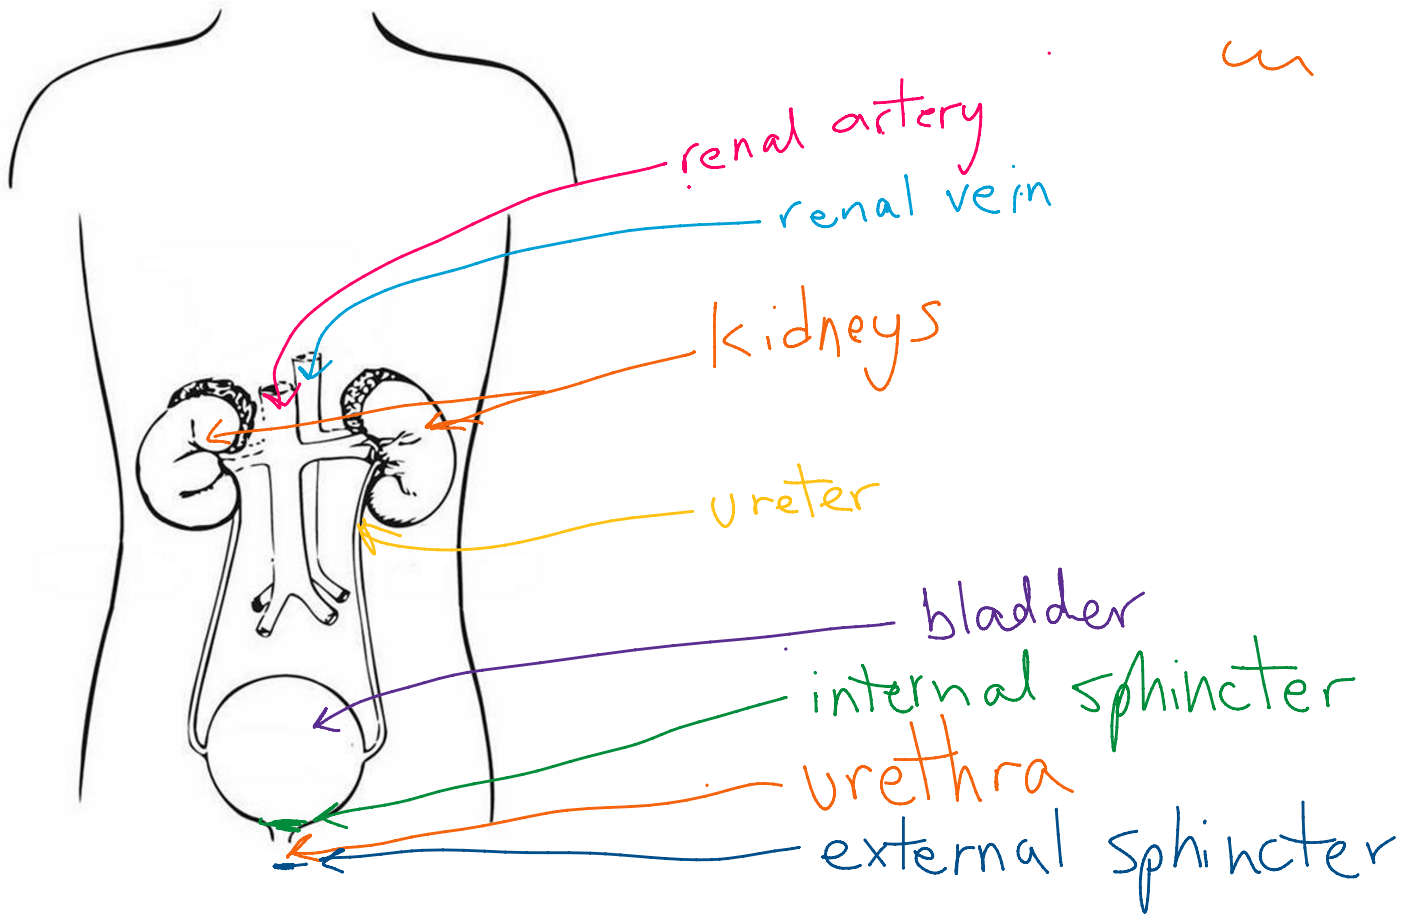 renal artery
renal vein
kidneys
ureter
bladder
internal sphincter
urethra
external sphincter